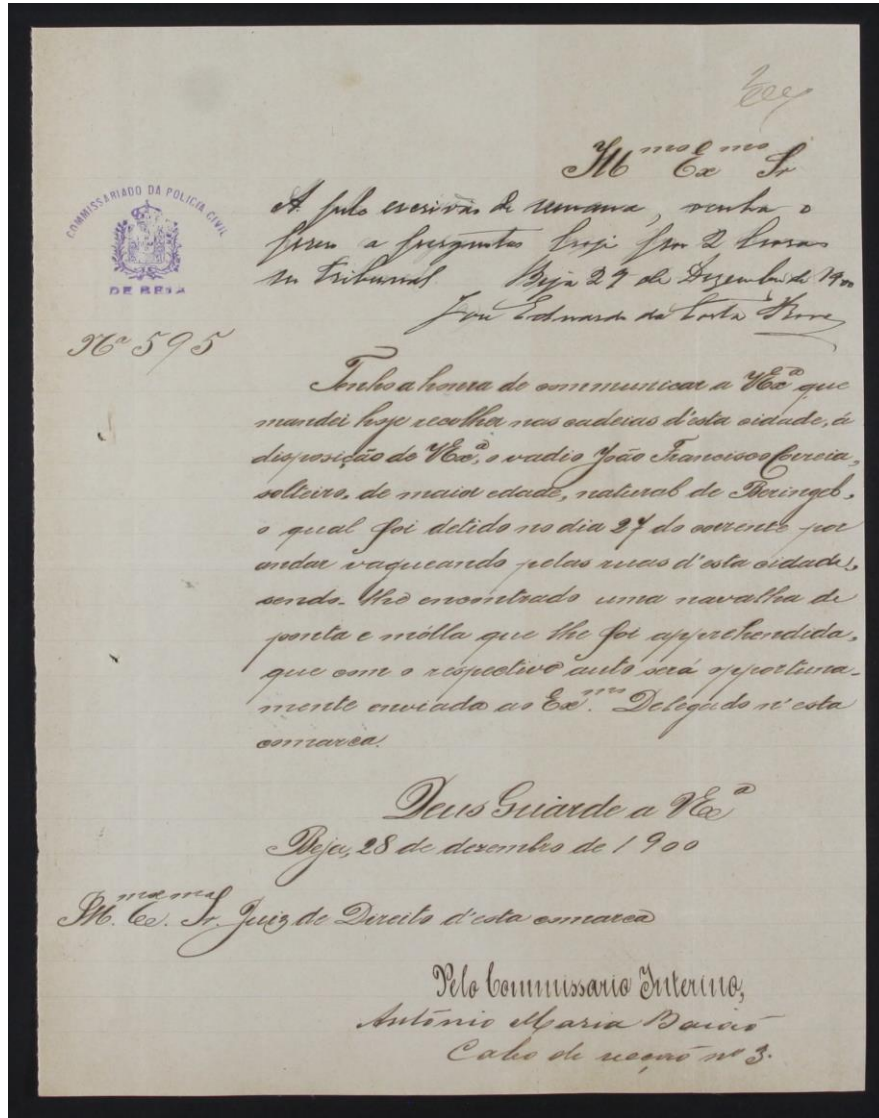 Ill^mo Ex^mo Sr
COMMISSARIADO DA POLICIA CIVIL
DE BEJA
A. pelo escrivão de semana, venha o
preso a perguntas hoje por 2 horas
no Tribunal. Beja 29 de Dezembro de 1900
José Eduardo da Costa
Nº 595
Tenho a honra de communicar a VExª que
mandei hoje recolher nas cadeias d'esta cidade, á
disposição de VExª, o vadio João Francisco Correia,
solteiro, de maior edade, natural de Beringel,
o qual foi detido no dia 27 do corrente por
andar vagueando pelas ruas d'esta cidade,
sendo-lhe encontrado uma navalha de
ponta e mólla que lhe foi apprehendida,
que com o respectivo auto será opportuna-
mente enviada ao Ex.^mo Delegado n'esta
comarca.
Deus Guarde a VExª
Beja, 28 de dezembro de 1900
Ill.^mo Ex.^mo Sr. Juiz de Direito d'esta comarca
Pelo Commissario Interino,
António Maria Baião
Cabo de secção nº 3.